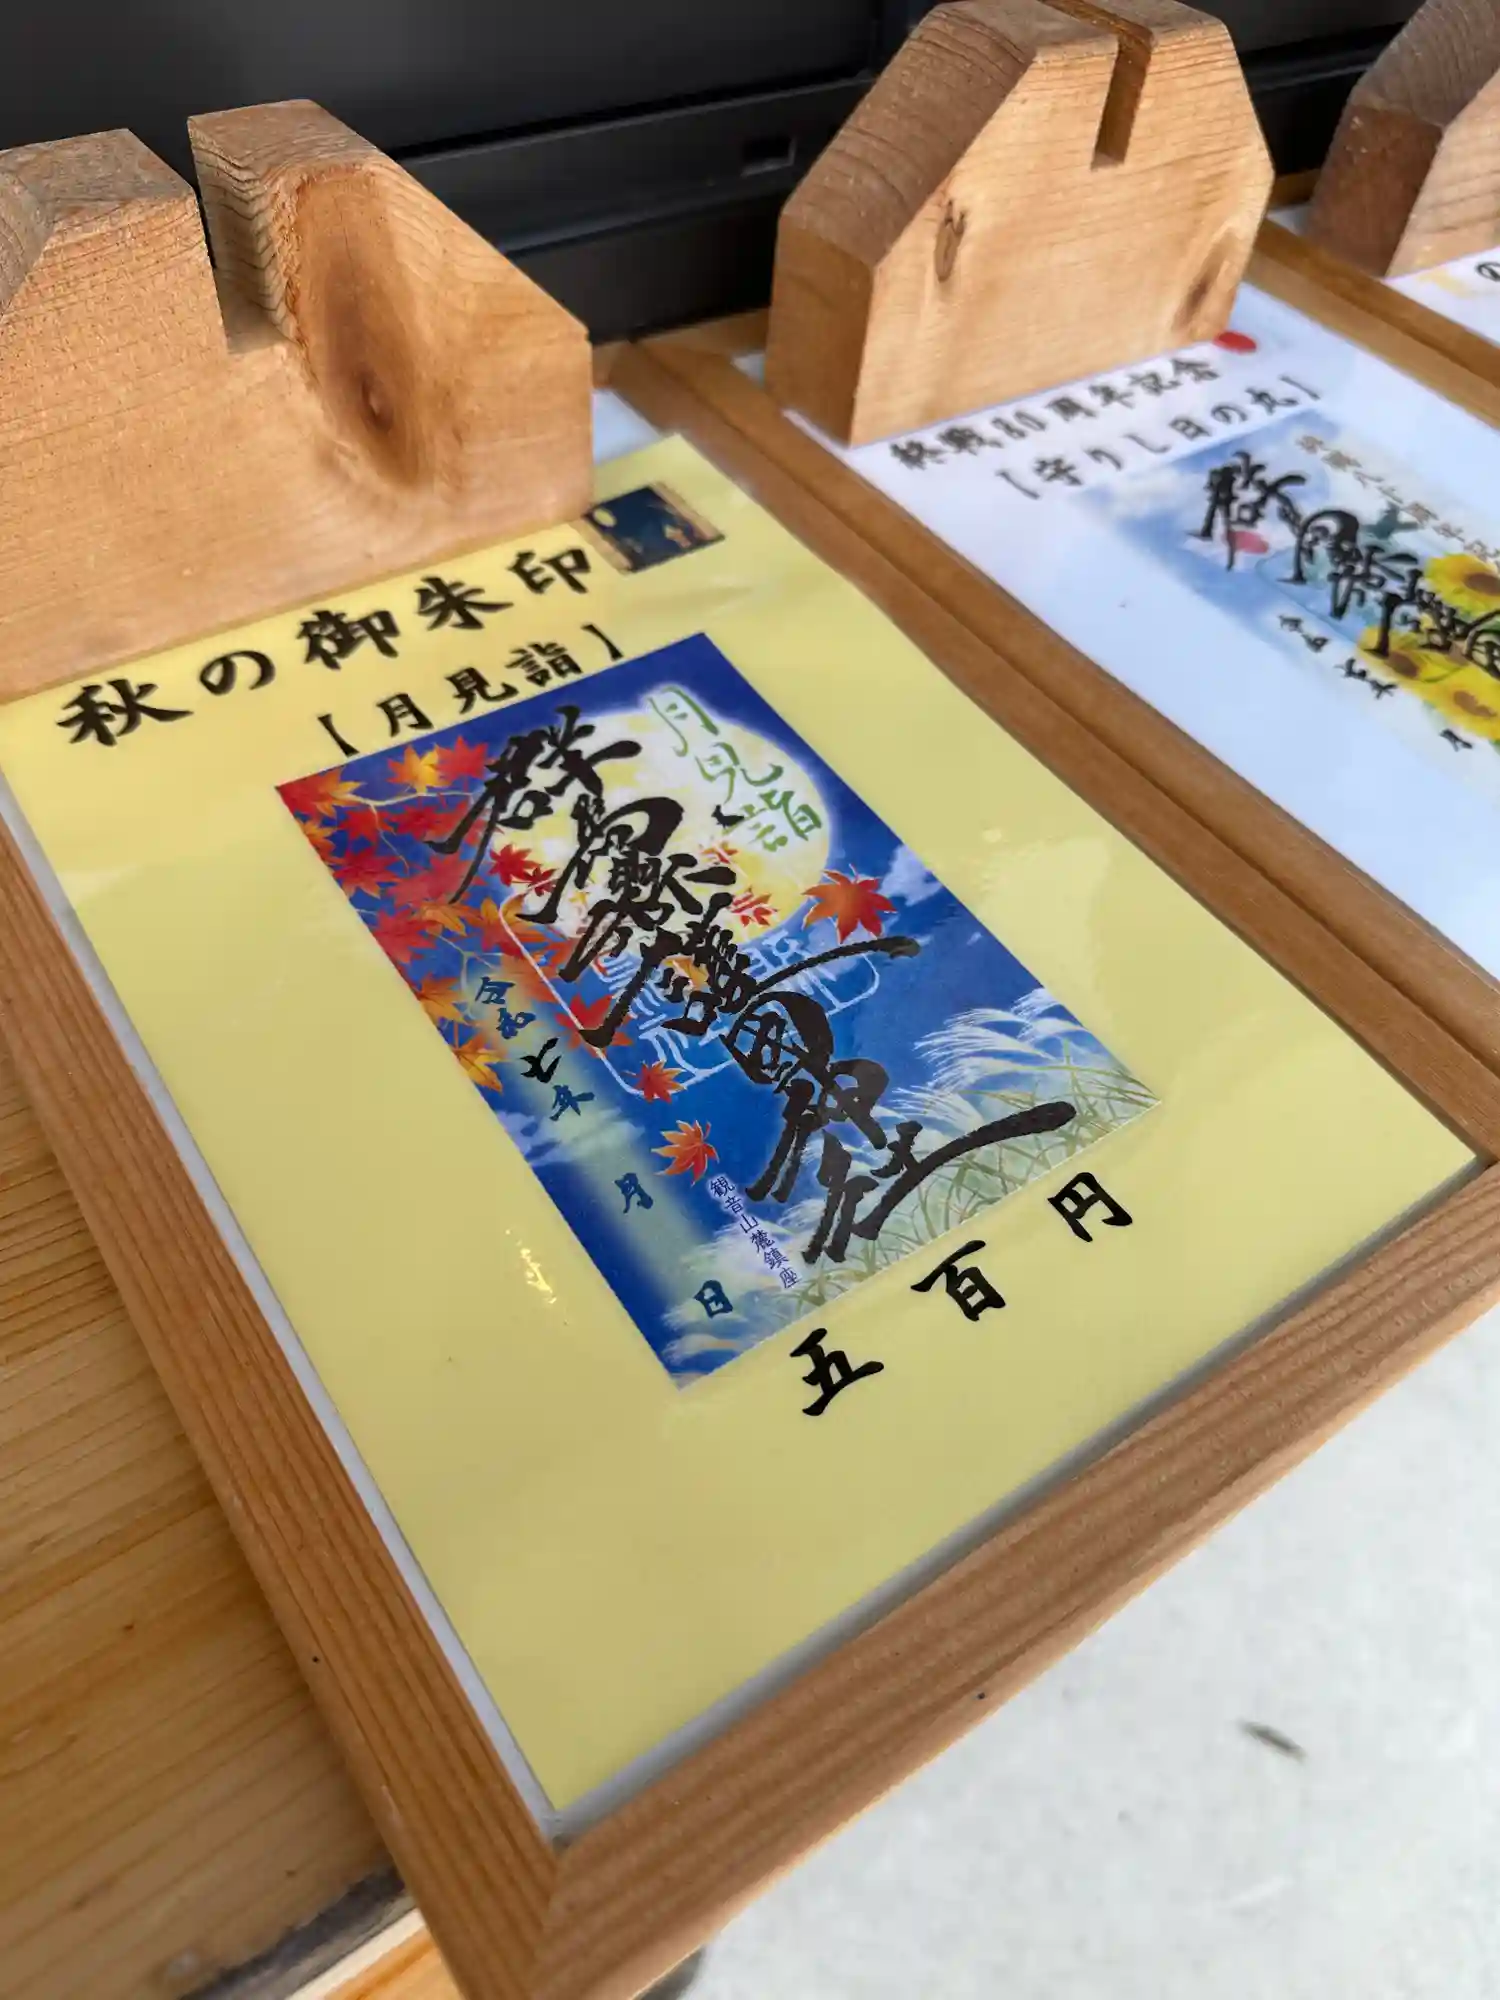 秋の御朱印
【月見詣】
月見詣
群馬縣護國神社
令和七年 月 日
観音山麓鎮座
五百円
終戦80周年記念
【守りし日の丸】
群馬縣護國
令和七年 月
の